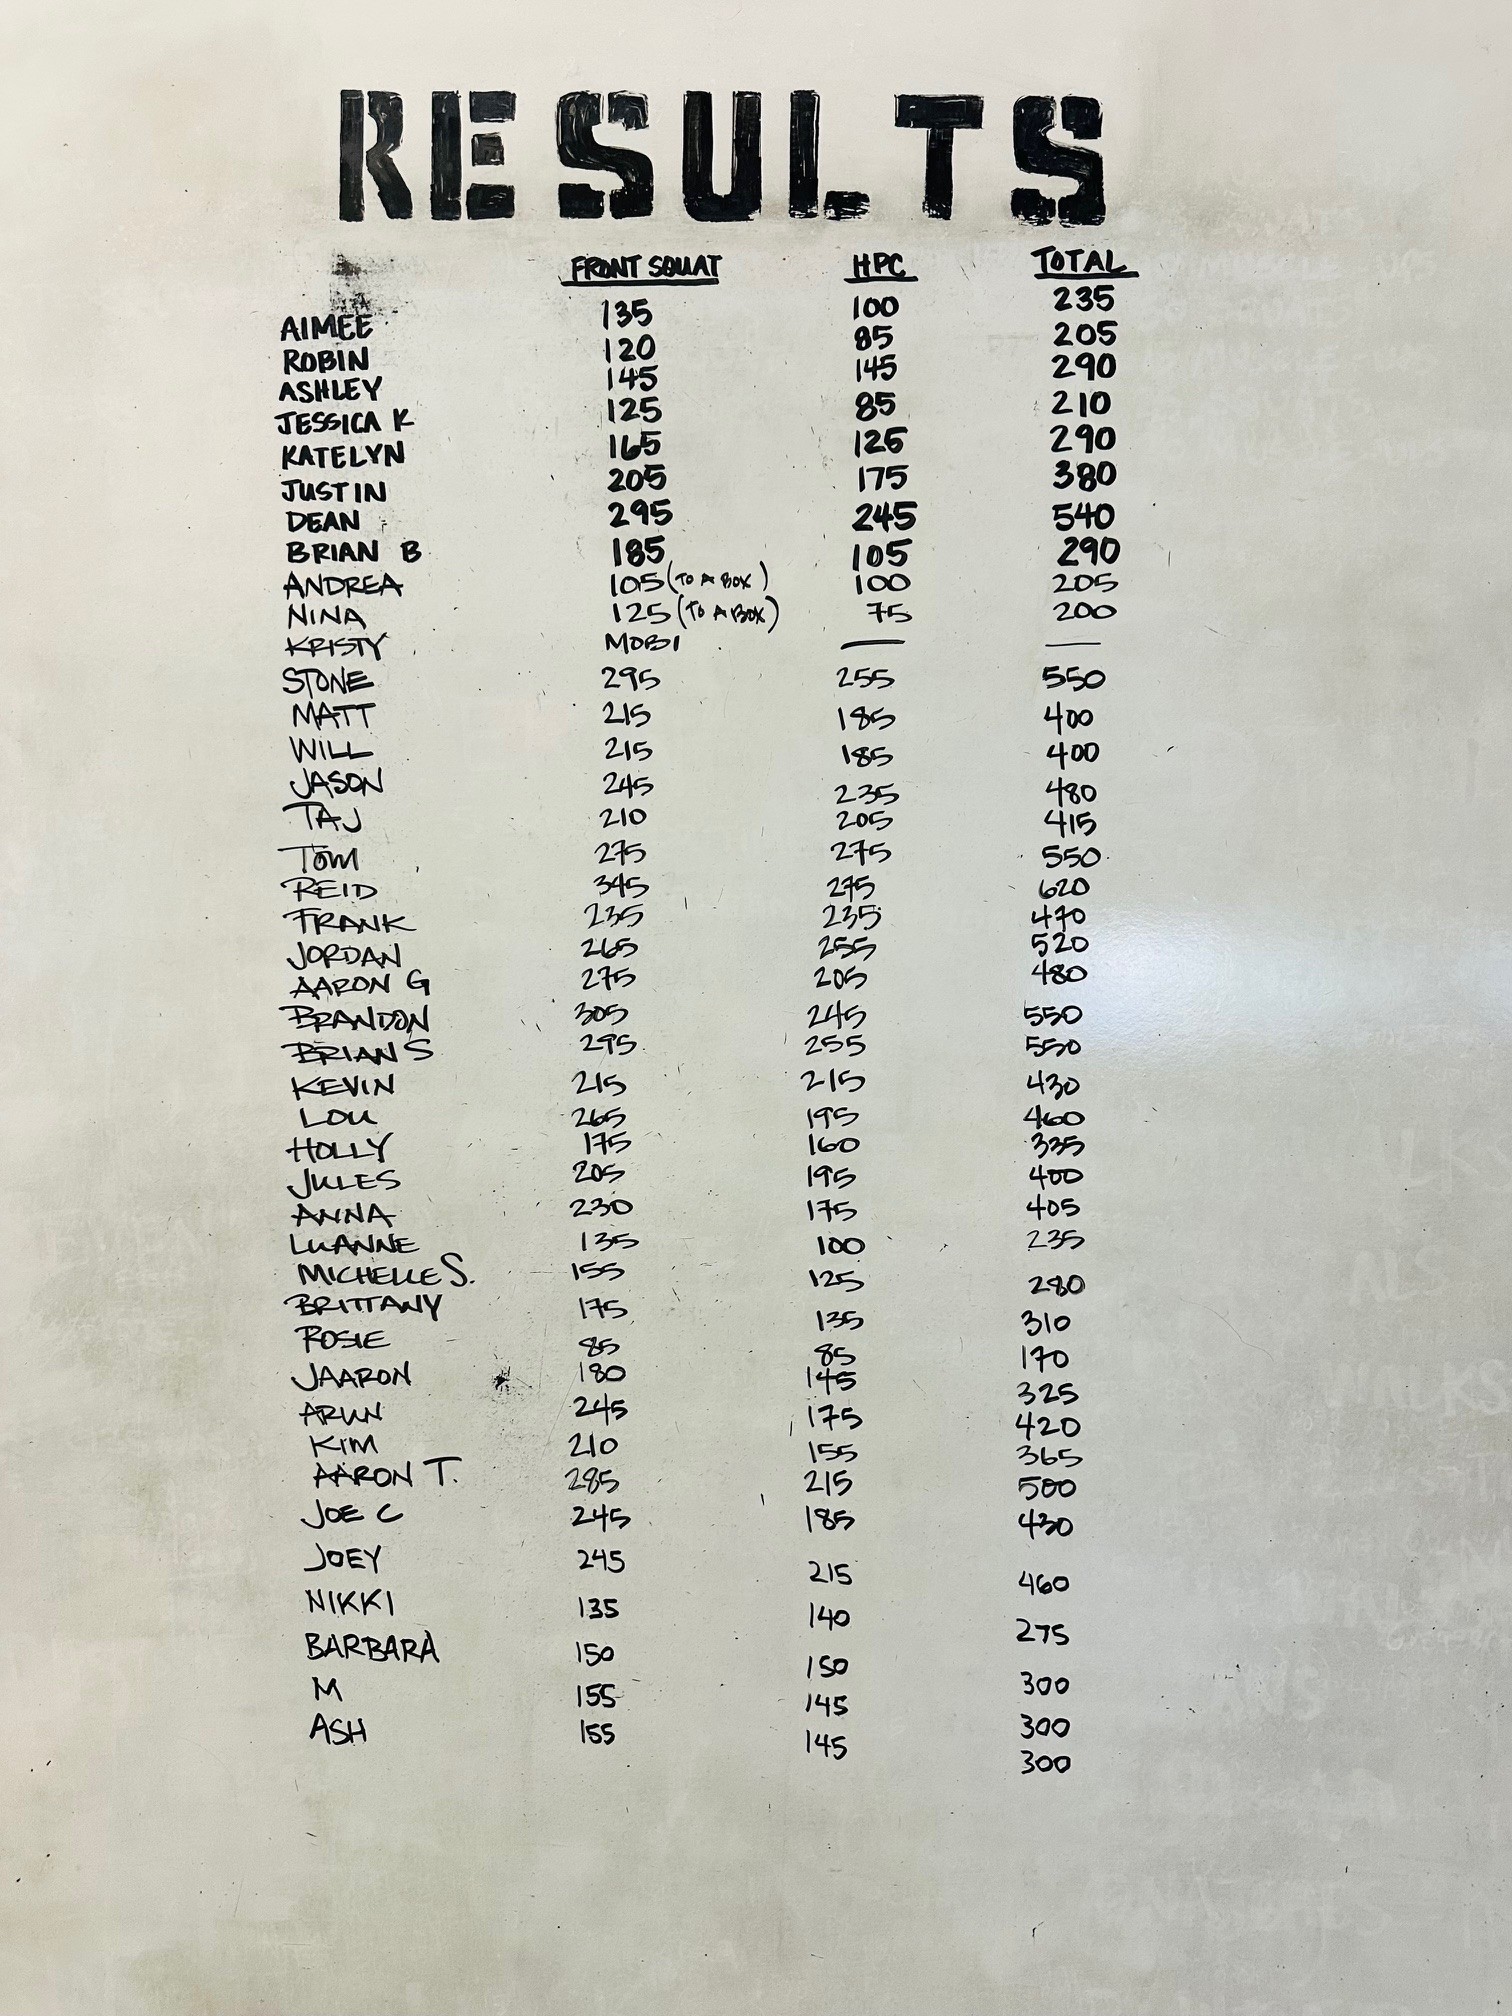 RESULTS
FRONT SQUAT HPC TOTAL
AIMEE 135 100 235
ROBIN 120 85 205
ASHLEY 145 145 290
JESSICA K 125 85 210
KATELYN 165 125 290
JUSTIN 205 175 380
DEAN 295 245 540
BRIAN B 185 105 290
ANDREA 105 (TO A BOX) 100 205
NINA 125 (TO A BOX) 75 200
KRISTY MOBI — —
STONE 295 255 550
MATT 215 185 400
WILL 215 185 400
JASON 245 235 480
TAJ 210 205 415
TOM 275 275 550
REID 345 275 620
FRANK 235 235 470
JORDAN 265 255 520
AARON G 275 205 480
BRANDON 305 245 550
BRIAN S 295 255 550
KEVIN 215 215 430
LOU 265 195 460
HOLLY 175 160 335
JULES 205 195 400
ANNA 230 175 405
LUANNE 135 100 235
MICHELLE S. 155 125 280
BRITTANY 175 135 310
ROSIE 85 85 170
JAARON 180 145 325
ARUN 245 175 420
KIM 210 155 365
AARON T. 285 215 500
JOE C 245 185 430
JOEY 245 215 460
NIKKI 135 140 275
BARBARA 150 150 300
M 155 145 300
ASH 155 145 300